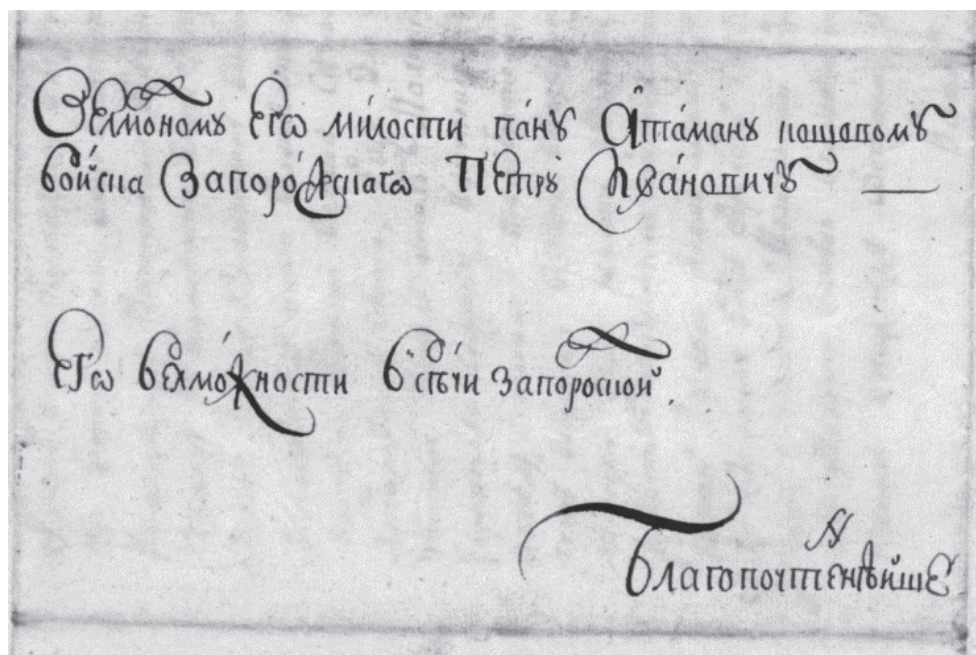 Велможному его милости пану Атаману кошовому
войска Запорожскаго Петру Ивановичу —
Его велможности в сѣчи Запороской.
Благопочтеннѣйше